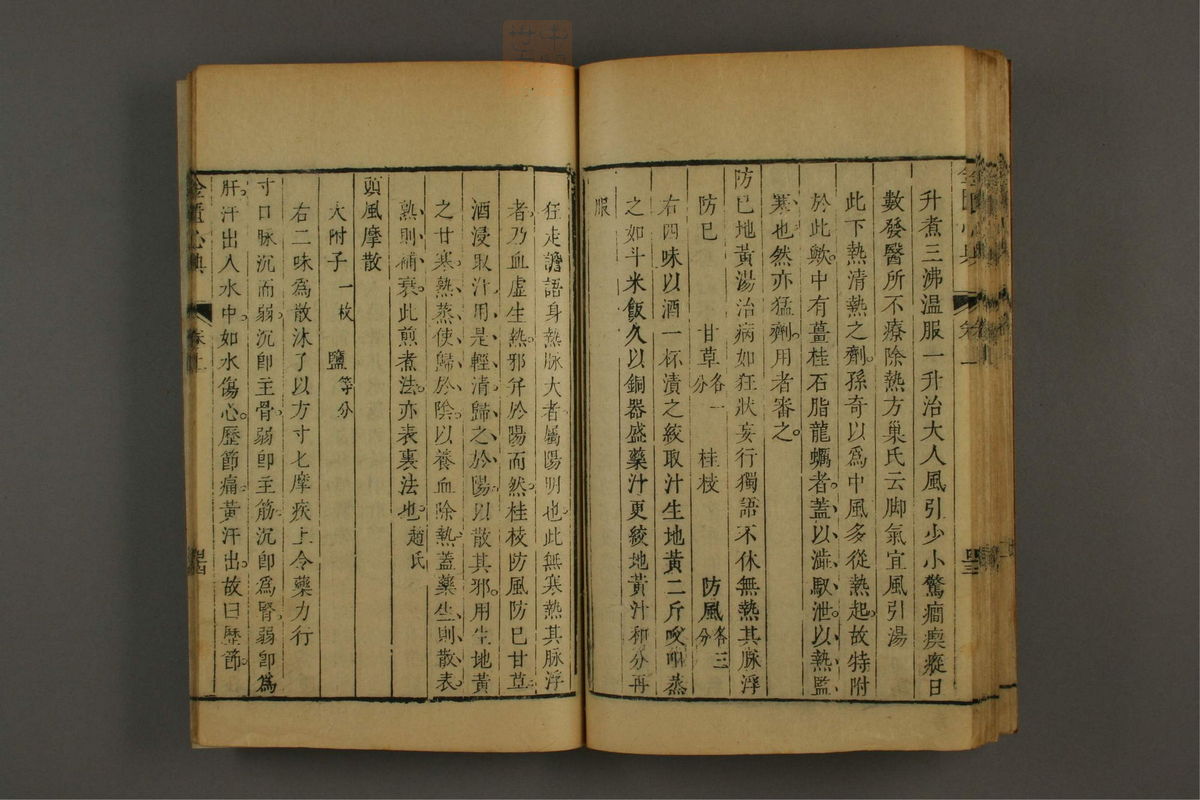 升煮三沸溫服一升治大人風引少小驚癎瘈瘲日
數發醫所不療除熱方巢氏云脚氣宜風引湯
此下熱清熱之劑孫奇以爲中風多從熱起故特附
於此歟中有薑桂石脂龍蠣者蓋以澁馭泄以熱監
寒也然亦猛劑用者審之
防已地黃湯治病如狂狀妄行獨語不休無熱其脉浮
防已 甘草各一分 桂枝 防風各三分
右四味以酒一杯漬之絞取汁生地黃二斤㕮咀蒸
之如斗米飯久以銅器盛藥汁更絞地黃汁和分再
服
狂走譫語身熱脉大者屬陽明也此無寒熱其脉浮
者乃血虛生熱邪并於陽而然桂枝防風防已甘草
酒浸取汁用是輕清歸之於陽以散其邪用生地黃
之甘寒熱蒸使歸於陰以養血除熱蓋藥生則散表
熟則補衰此煎煮法亦表裏法也趙氏
頭風摩散
大附子一枚 鹽等分
右二味爲散沐了以方寸匕摩疾上令藥力行
寸口脉沉而弱沉卽主骨弱卽主筋沉卽爲腎弱卽爲
肝汗出入水中如水傷心歷節痛黃汗出故曰歷節
金匱心典 卷上 四十四